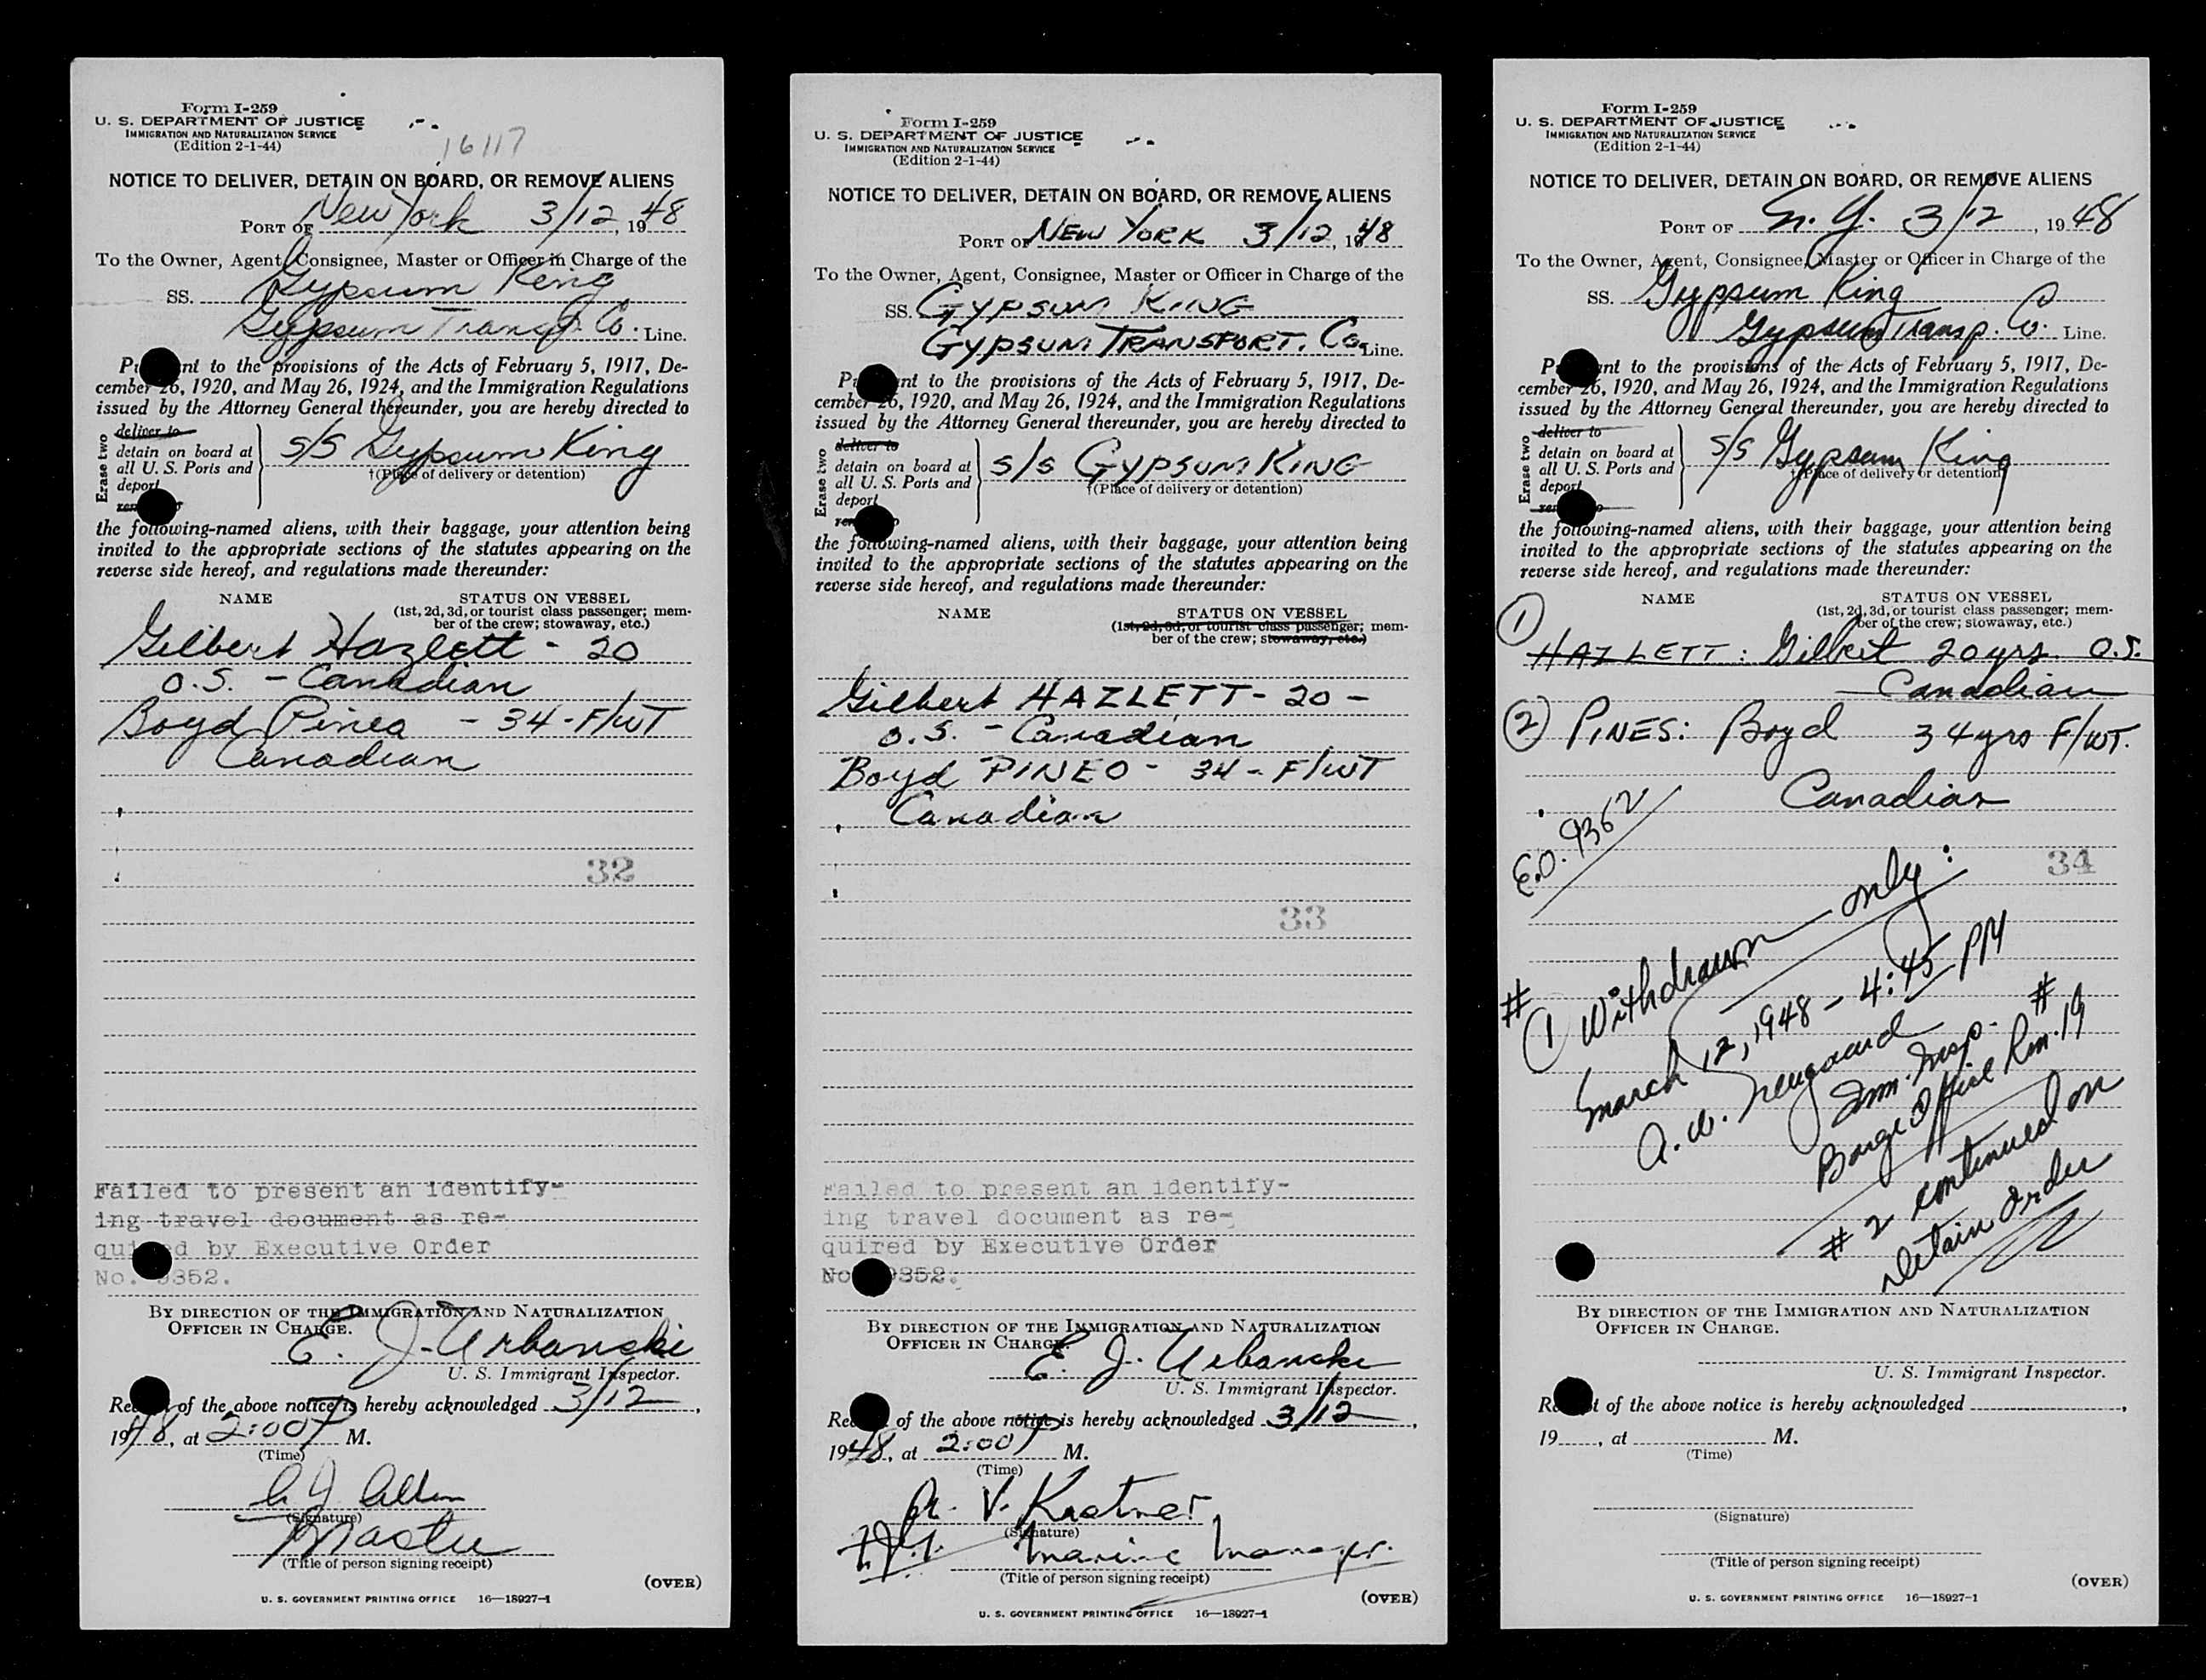 Form I-259
U. S. DEPARTMENT OF JUSTICE
IMMIGRATION AND NATURALIZATION SERVICE
(Edition 2-1-44)
16117
NOTICE TO DELIVER, DETAIN ON BOARD, OR REMOVE ALIENS
PORT OF New York 3/12, 1948
To the Owner, Agent, Consignee, Master or Officer in Charge of the
SS. Gypsum King
Gypsum Transp. Co. Line.
nt to the provisions of the Acts of February 5, 1917, De-
cember 26, 1920, and May 26, 1924, and the Immigration Regulations
issued by the Attorney General thereunder, you are hereby directed to
Erase two
deliver to
detain on board at
all U. S. Ports and
deport
S/S Gypsum King
†(Place of delivery or detention)
the following-named aliens, with their baggage, your attention being
invited to the appropriate sections of the statutes appearing on the
reverse side hereof, and regulations made thereunder:
NAME STATUS ON VESSEL
(1st, 2d, 3d, or tourist class passenger; mem-
ber of the crew; stowaway, etc.)
Gilbert Hazlett - 20
O.S. - Canadian
Boyd Pineo - 34 - F/WT
Canadian
32
Failed to present an identify-
ing travel document as re-
quired by Executive Order
No. 9352.
BY DIRECTION OF THE IMMIGRATION AND NATURALIZATION
OFFICER IN CHARGE.
E. J. Urbanski
U. S. Immigrant Inspector.
of the above notice is hereby acknowledged 3/12,
1948, at 2:00 P M.
(Time)
(Signature)
Master
(Title of person signing receipt)
(OVER)
U. S. GOVERNMENT PRINTING OFFICE 16—18927-1
Form I-259
U. S. DEPARTMENT OF JUSTICE
IMMIGRATION AND NATURALIZATION SERVICE
(Edition 2-1-44)
NOTICE TO DELIVER, DETAIN ON BOARD, OR REMOVE ALIENS
PORT OF NEW YORK 3/12, 1948
To the Owner, Agent, Consignee, Master or Officer in Charge of the
SS. GYPSUM KING
GYPSUM TRANSPORT. CO. Line.
nt to the provisions of the Acts of February 5, 1917, De-
cember 26, 1920, and May 26, 1924, and the Immigration Regulations
issued by the Attorney General thereunder, you are hereby directed to
Erase two
deliver to
detain on board at
all U. S. Ports and
deport
S/S GYPSUM KING
†(Place of delivery or detention)
the following-named aliens, with their baggage, your attention being
invited to the appropriate sections of the statutes appearing on the
reverse side hereof, and regulations made thereunder:
NAME STATUS ON VESSEL
(1st, 2d, 3d, or tourist class passenger; mem-
ber of the crew; stowaway, etc.)
Gilbert HAZLETT - 20 -
O.S. - Canadian
Boyd PINEO - 34 - F/WT
Canadian
33
Failed to present an identify-
ing travel document as re-
quired by Executive Order
No. 9352.
BY DIRECTION OF THE IMMIGRATION AND NATURALIZATION
OFFICER IN CHARGE.
E. J. Urbanski
U. S. Immigrant Inspector.
of the above notice is hereby acknowledged 3/12,
1948, at 2:00 P M.
(Time)
V. Kastner
(Signature)
Marine Manager.
(Title of person signing receipt)
(OVER)
U. S. GOVERNMENT PRINTING OFFICE 16—18927-1
Form I-259
U. S. DEPARTMENT OF JUSTICE
IMMIGRATION AND NATURALIZATION SERVICE
(Edition 2-1-44)
NOTICE TO DELIVER, DETAIN ON BOARD, OR REMOVE ALIENS
PORT OF N. Y. 3/12, 1948
To the Owner, Agent, Consignee, Master or Officer in Charge of the
SS. Gypsum King
Gypsum Transp. Co. Line.
nt to the provisions of the Acts of February 5, 1917, De-
cember 26, 1920, and May 26, 1924, and the Immigration Regulations
issued by the Attorney General thereunder, you are hereby directed to
Erase two
deliver to
detain on board at
all U. S. Ports and
deport
S/S Gypsum King
†(Place of delivery or detention)
the following-named aliens, with their baggage, your attention being
invited to the appropriate sections of the statutes appearing on the
reverse side hereof, and regulations made thereunder:
NAME STATUS ON VESSEL
(1st, 2d, 3d, or tourist class passenger; mem-
ber of the crew; stowaway, etc.)
1 HAZLETT: Gilbert 20 yrs O.S.
Canadian
2 PINES: Boyd 34 yrs F/WT.
Canadian
E.O. 9362
34
#1 Withdrawn only:
March 12, 1948 - 4:45 PM
A. W.
Imm. Insp.
Barge Office Rm. #19
#2 continued on
detain order
BY DIRECTION OF THE IMMIGRATION AND NATURALIZATION
OFFICER IN CHARGE.
U. S. Immigrant Inspector.
of the above notice is hereby acknowledged
19, at M.
(Time)
(Signature)
(Title of person signing receipt)
(OVER)
U. S. GOVERNMENT PRINTING OFFICE 16—18927-1